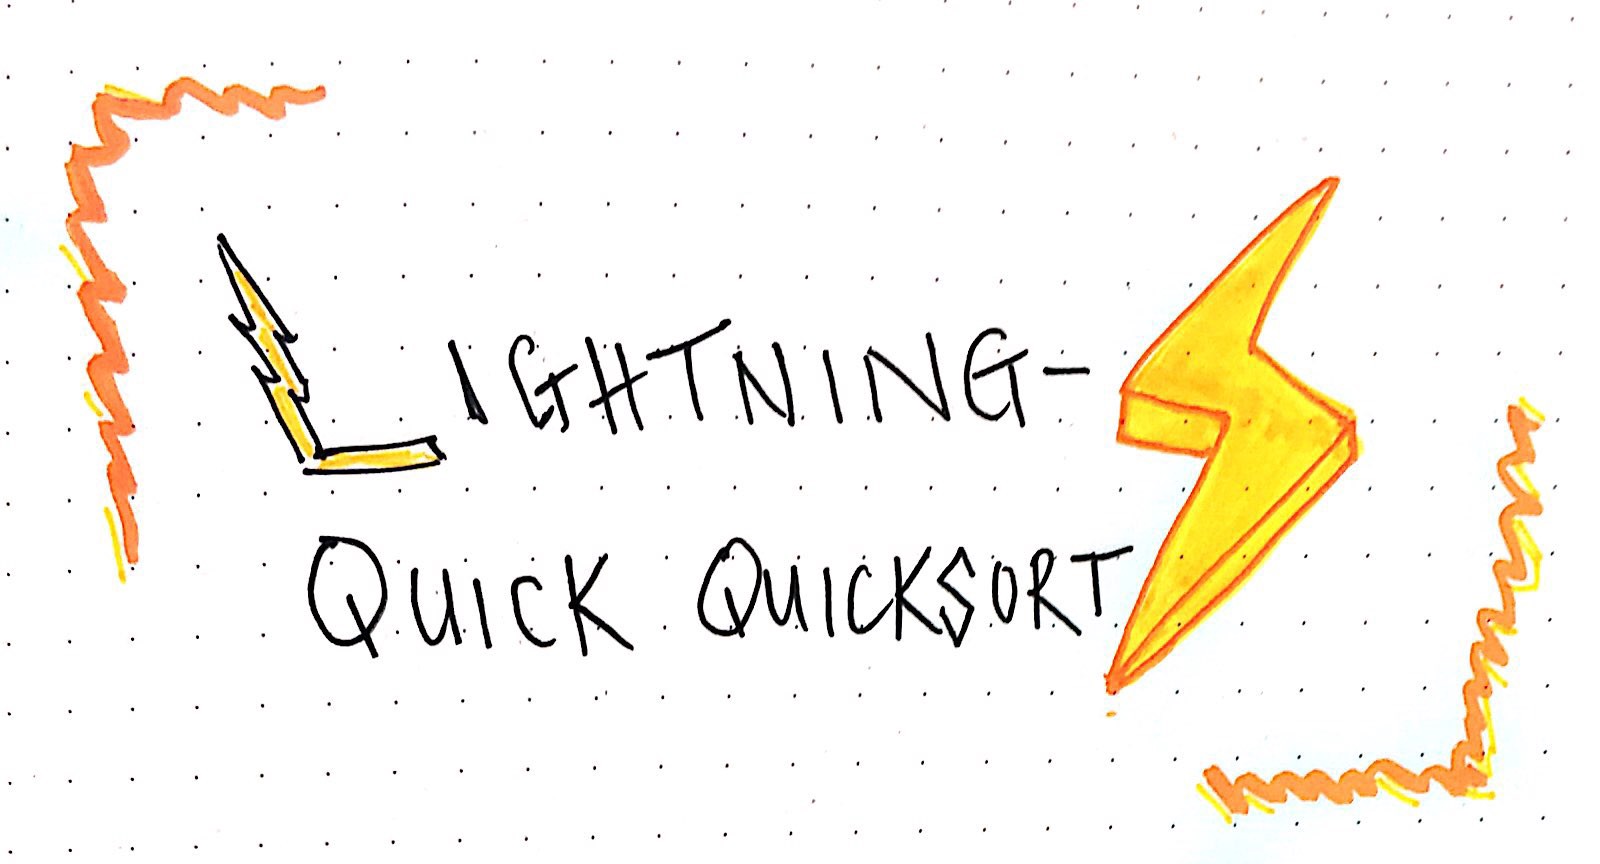 LIGHTNING-
QUICK QUICKSORT